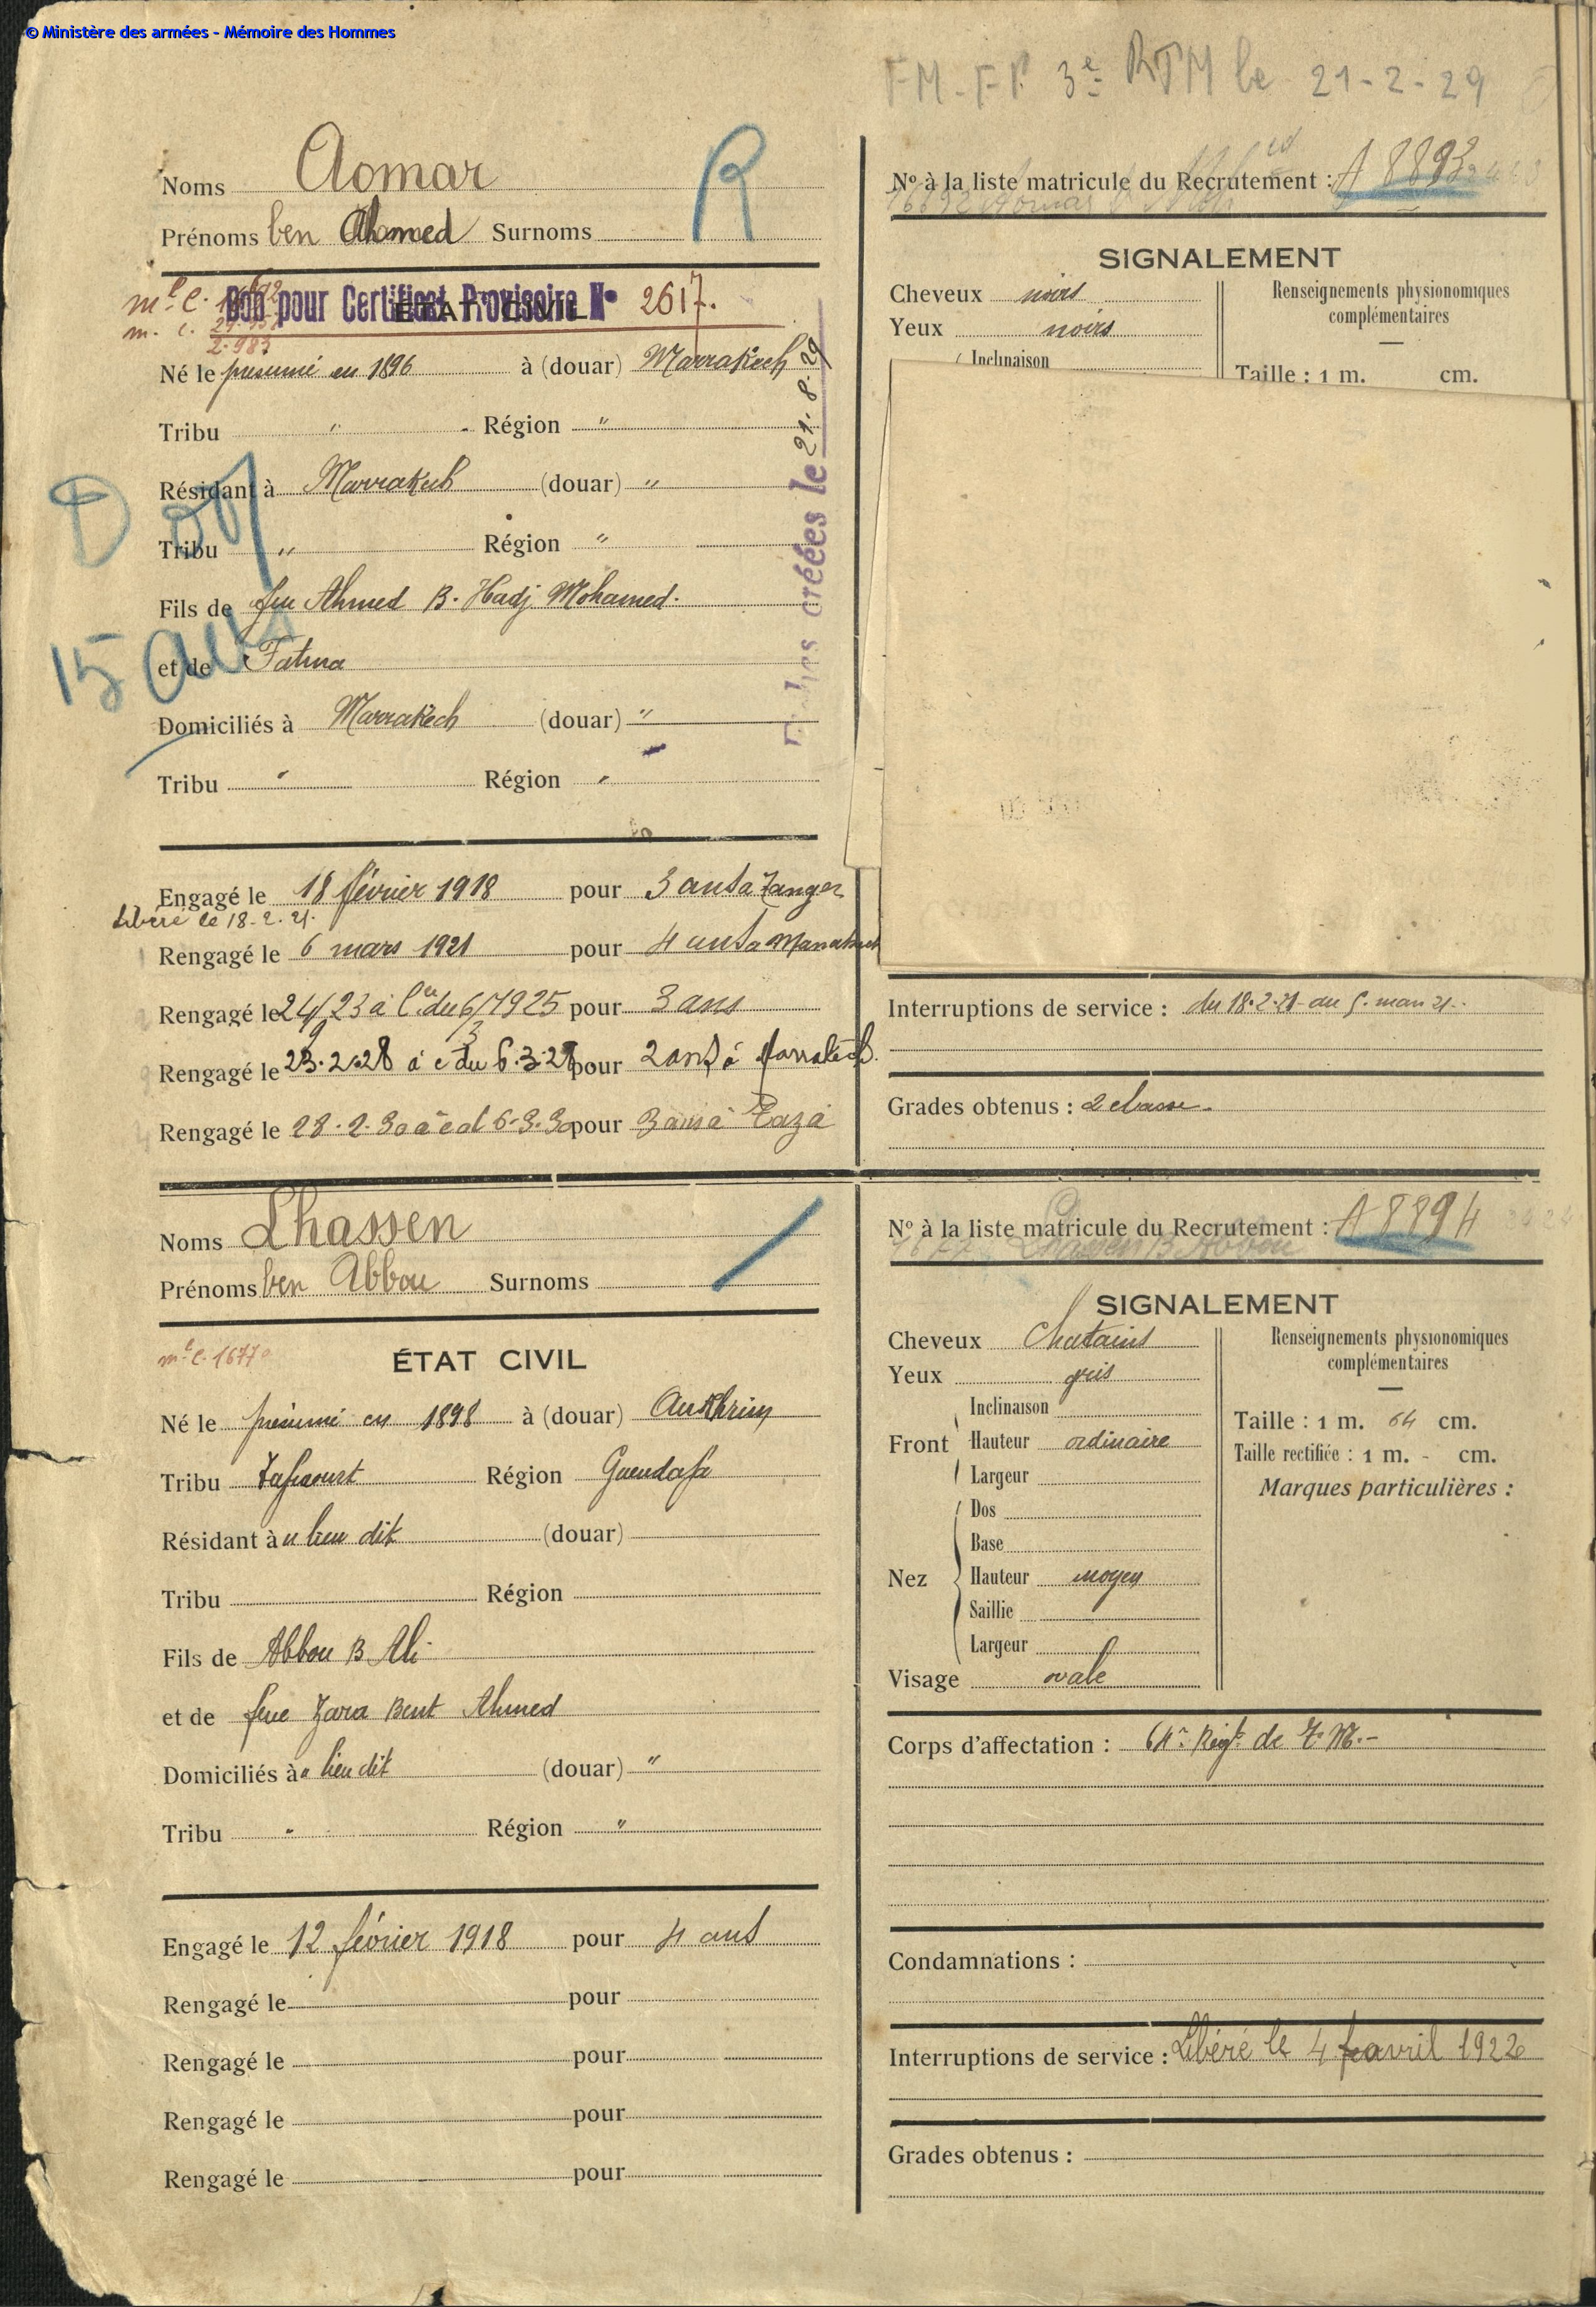 © Ministère des armées - Mémoire des Hommes
3e RTM le 21-2-29
Noms Aomar
R
Prénoms ben Ahmed Surnoms
Bon pour Certificat Provisoire N° 2617.
ÉTAT CIVIL
Né le présumé en 1896 à (douar) Marrakech
Tribu " Région "
Résidant à Marrakech (douar) "
Tribu " Région "
Fils de feu Ahmed B. Hadj Mohamed.
15 ans
et de Fatma
Domiciliés à Marrakech (douar) "
Tribu " Région "
créées le 21.8.29
Engagé le 18 février 1918 pour 3 ans à Tanger
Libéré le 18-2-21.
Rengagé le 6 mars 1921 pour 4 ans à
Rengagé le 24/9/23 à c. du 6/3/1925 pour 3 ans
Rengagé le 23.2.28 à c du 6.3.28 pour 2 ans à Marrakech.
Rengagé le 28.2.30 à c d 6-3-30 pour 3 ans à Taza
N° à la liste matricule du Recrutement : A 8893
SIGNALEMENT
Cheveux noirs
Yeux noirs
Inclinaison
Renseignements physionomiques
complémentaires
Taille : 1 m. cm.
Interruptions de service : du 18.2.21 au 5. mars 21.
Grades obtenus : 2 classe.
Noms Lhassen
Prénoms ben Abbou Surnoms
mle C. 1677
ÉTAT CIVIL
Né le présumé en 1898 à (douar)
Tribu Région Guendafa
Résidant à u lieu dit (douar)
Tribu Région
Fils de Abbou B Ali
et de feue Zara Bent Ahmed
Domiciliés à u lieu dit (douar) "
Tribu " Région "
Engagé le 12 février 1918 pour 4 ans
Rengagé le pour
Rengagé le pour
Rengagé le pour
Rengagé le pour
N° à la liste matricule du Recrutement : A 8894
SIGNALEMENT
Cheveux Chatains
Yeux gris
Front
Inclinaison
Hauteur ordinaire
Largeur
Nez
Dos
Base
Hauteur moyen
Saillie
Largeur
Visage ovale
Renseignements physionomiques
complémentaires
Taille : 1 m. 64 cm.
Taille rectifiée : 1 m. - cm.
Marques particulières :
Corps d'affectation : 64e Régt de T. M. -
Condamnations :
Interruptions de service : Libéré le 4 avril 1922
Grades obtenus :